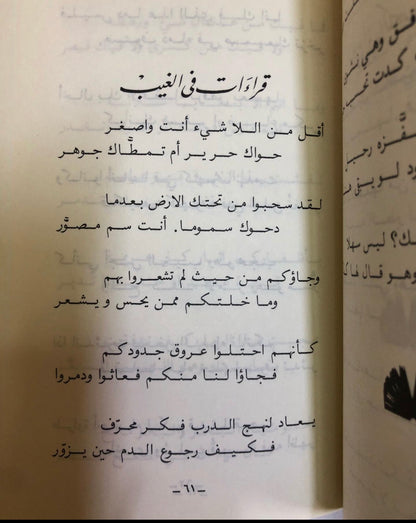 قراءات في الغيب
أقل من اللا شيء أنت واصغر
حواك حرير أم تمطَّاك جوهر
لقد سحبوا من تحتك الارض بعدما
دحوك سموما. أنت سم مصوَّر
وجاؤكم من حيث لم تشعروا بهم
وما خلتكم ممن يحس ويشعر
كأنهم احتلوا عروق جدودكم
فجاؤا لنا منكم فعاثوا ودمروا
يعاد لنهج الدرب فكر محرّف
فكيف رجوع الدم حين يزوّر
ـ ٦١ ـ
فق وهي
كدت
ك؟ ليس سهلا
وهو قال